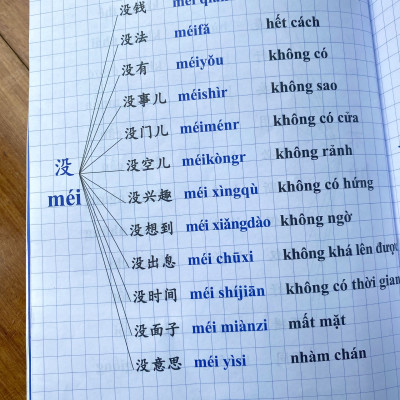 没钱 méi
没法 méifǎ hết cách
没有 méiyǒu không có
没事儿 méishìr không sao
没门儿 méiménr không có cửa
没空儿 méikòngr không rảnh
没 méi
没兴趣 méi xìngqù không có hứng
没想到 méi xiǎngdào không ngờ
没出息 méi chūxi không khá lên được
没时间 méi shíjiān không có thời gian
没面子 méi miànzi mất mặt
没意思 méi yìsi nhàm chán